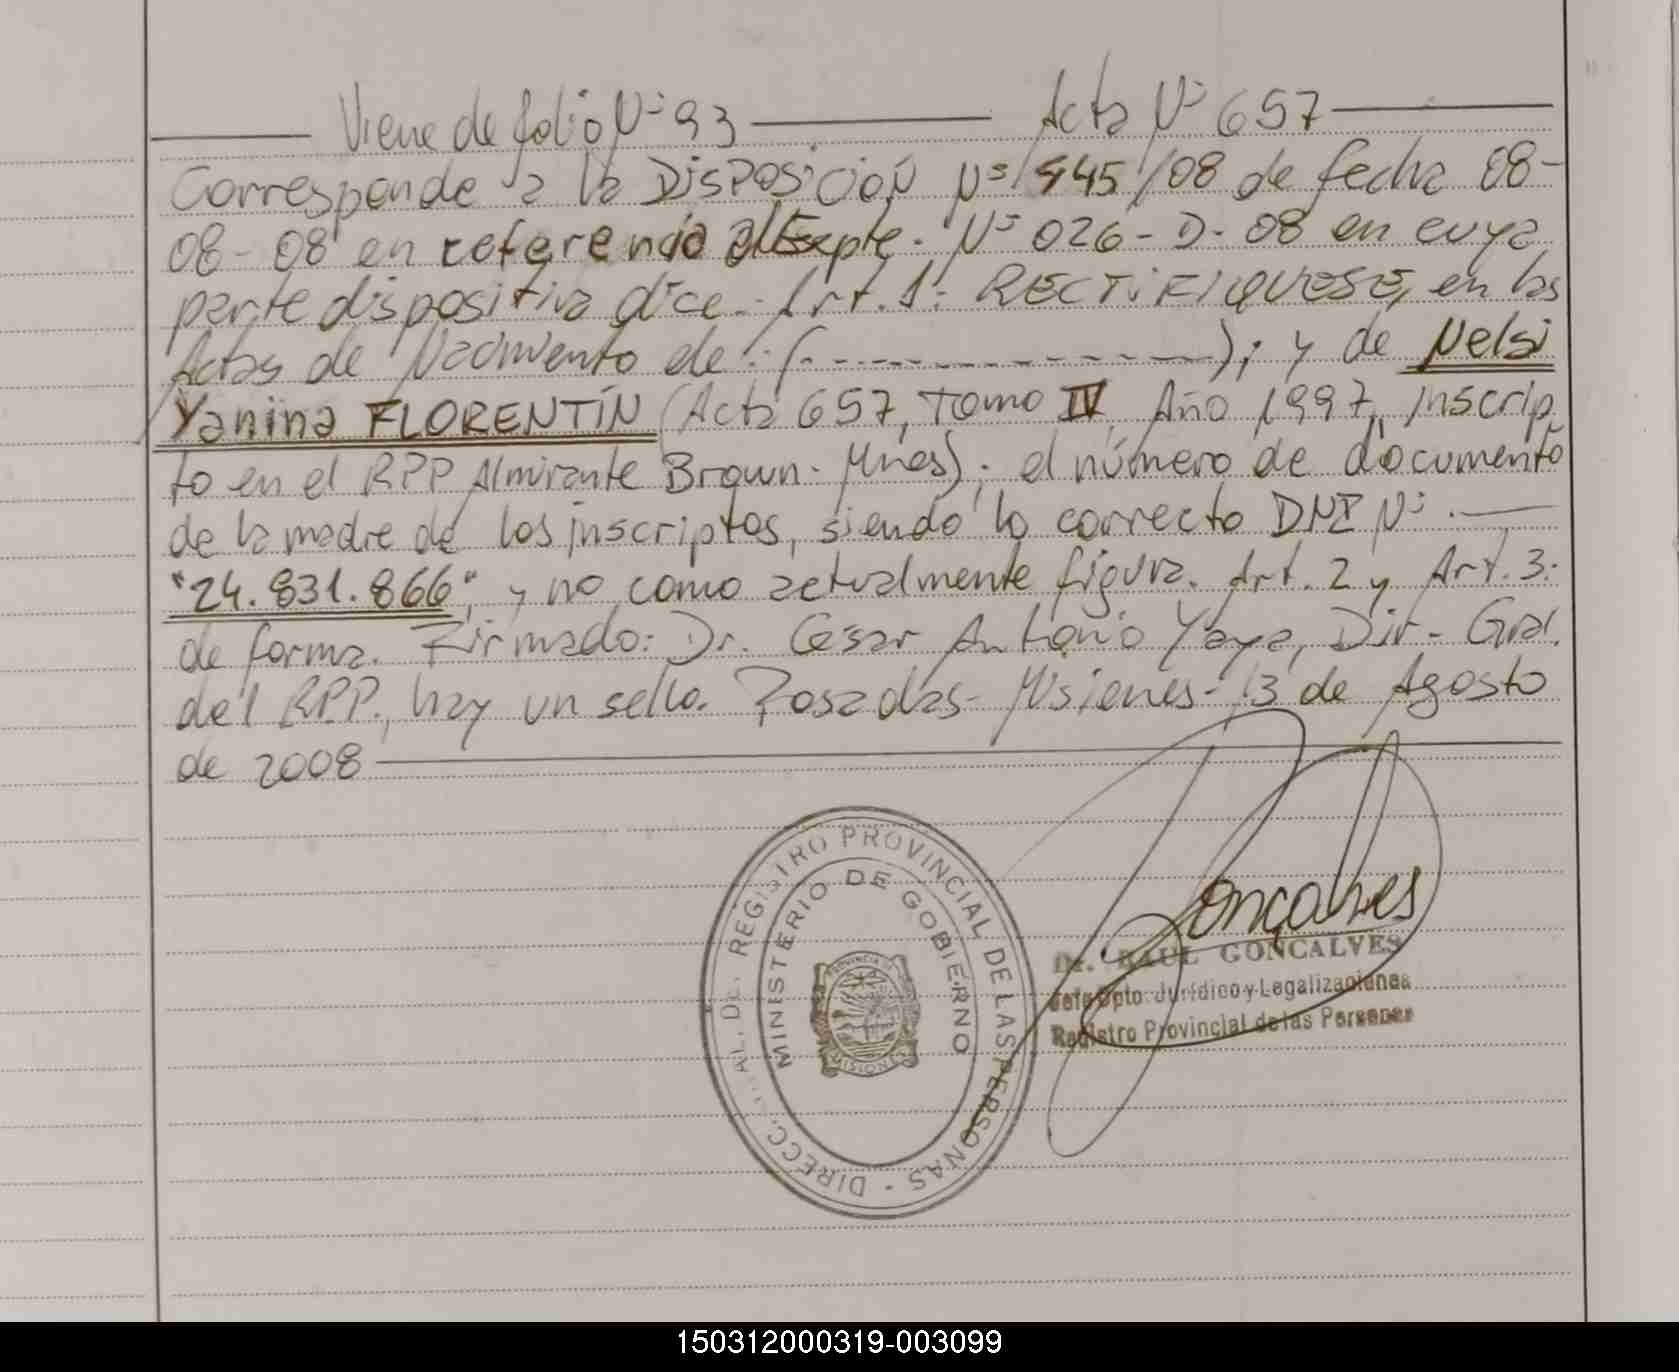 Viene de folio Nº 93 Acta Nº 657
Corresponde a la DISPOSICIÓN Nº 945/08 de fecha 08-
08-08 en referencia al Expte. Nº 026-D-08 en cuya
parte dispositiva dice: Art. 1: RECTIFIQUESE, en las
Actas de Nacimiento de: (- - - - - - - - - - - -); y de Nelsi
Yanina FLORENTÍN (Acta 657, Tomo IV, Año 1997, inscrip
to en el RPP Almirante Brown. Mnes); el número de documento
de la madre de los inscriptos, siendo lo correcto DNI Nº:
"24.831.866", y no como actualmente figura. Art. 2 y Art. 3:
de forma. Firmado: Dr. César Antonio Yaya, Dir. Gral.
del RPP., hay un sello. Posadas- Misiones- 13 de Agosto
de 2008
DIRECC. GRAL. DE. REGISTRO PROVINCIAL DE LAS PERSONAS -
MINISTERIO DE GOBIERNO
PROVINCIA DE
MISIONES
Gonçalves
Dr. RAUL GONÇALVES
Jefe Dpto. Jurídico y Legalizaciones
Registro Provincial de las Personas
150312000319-003099